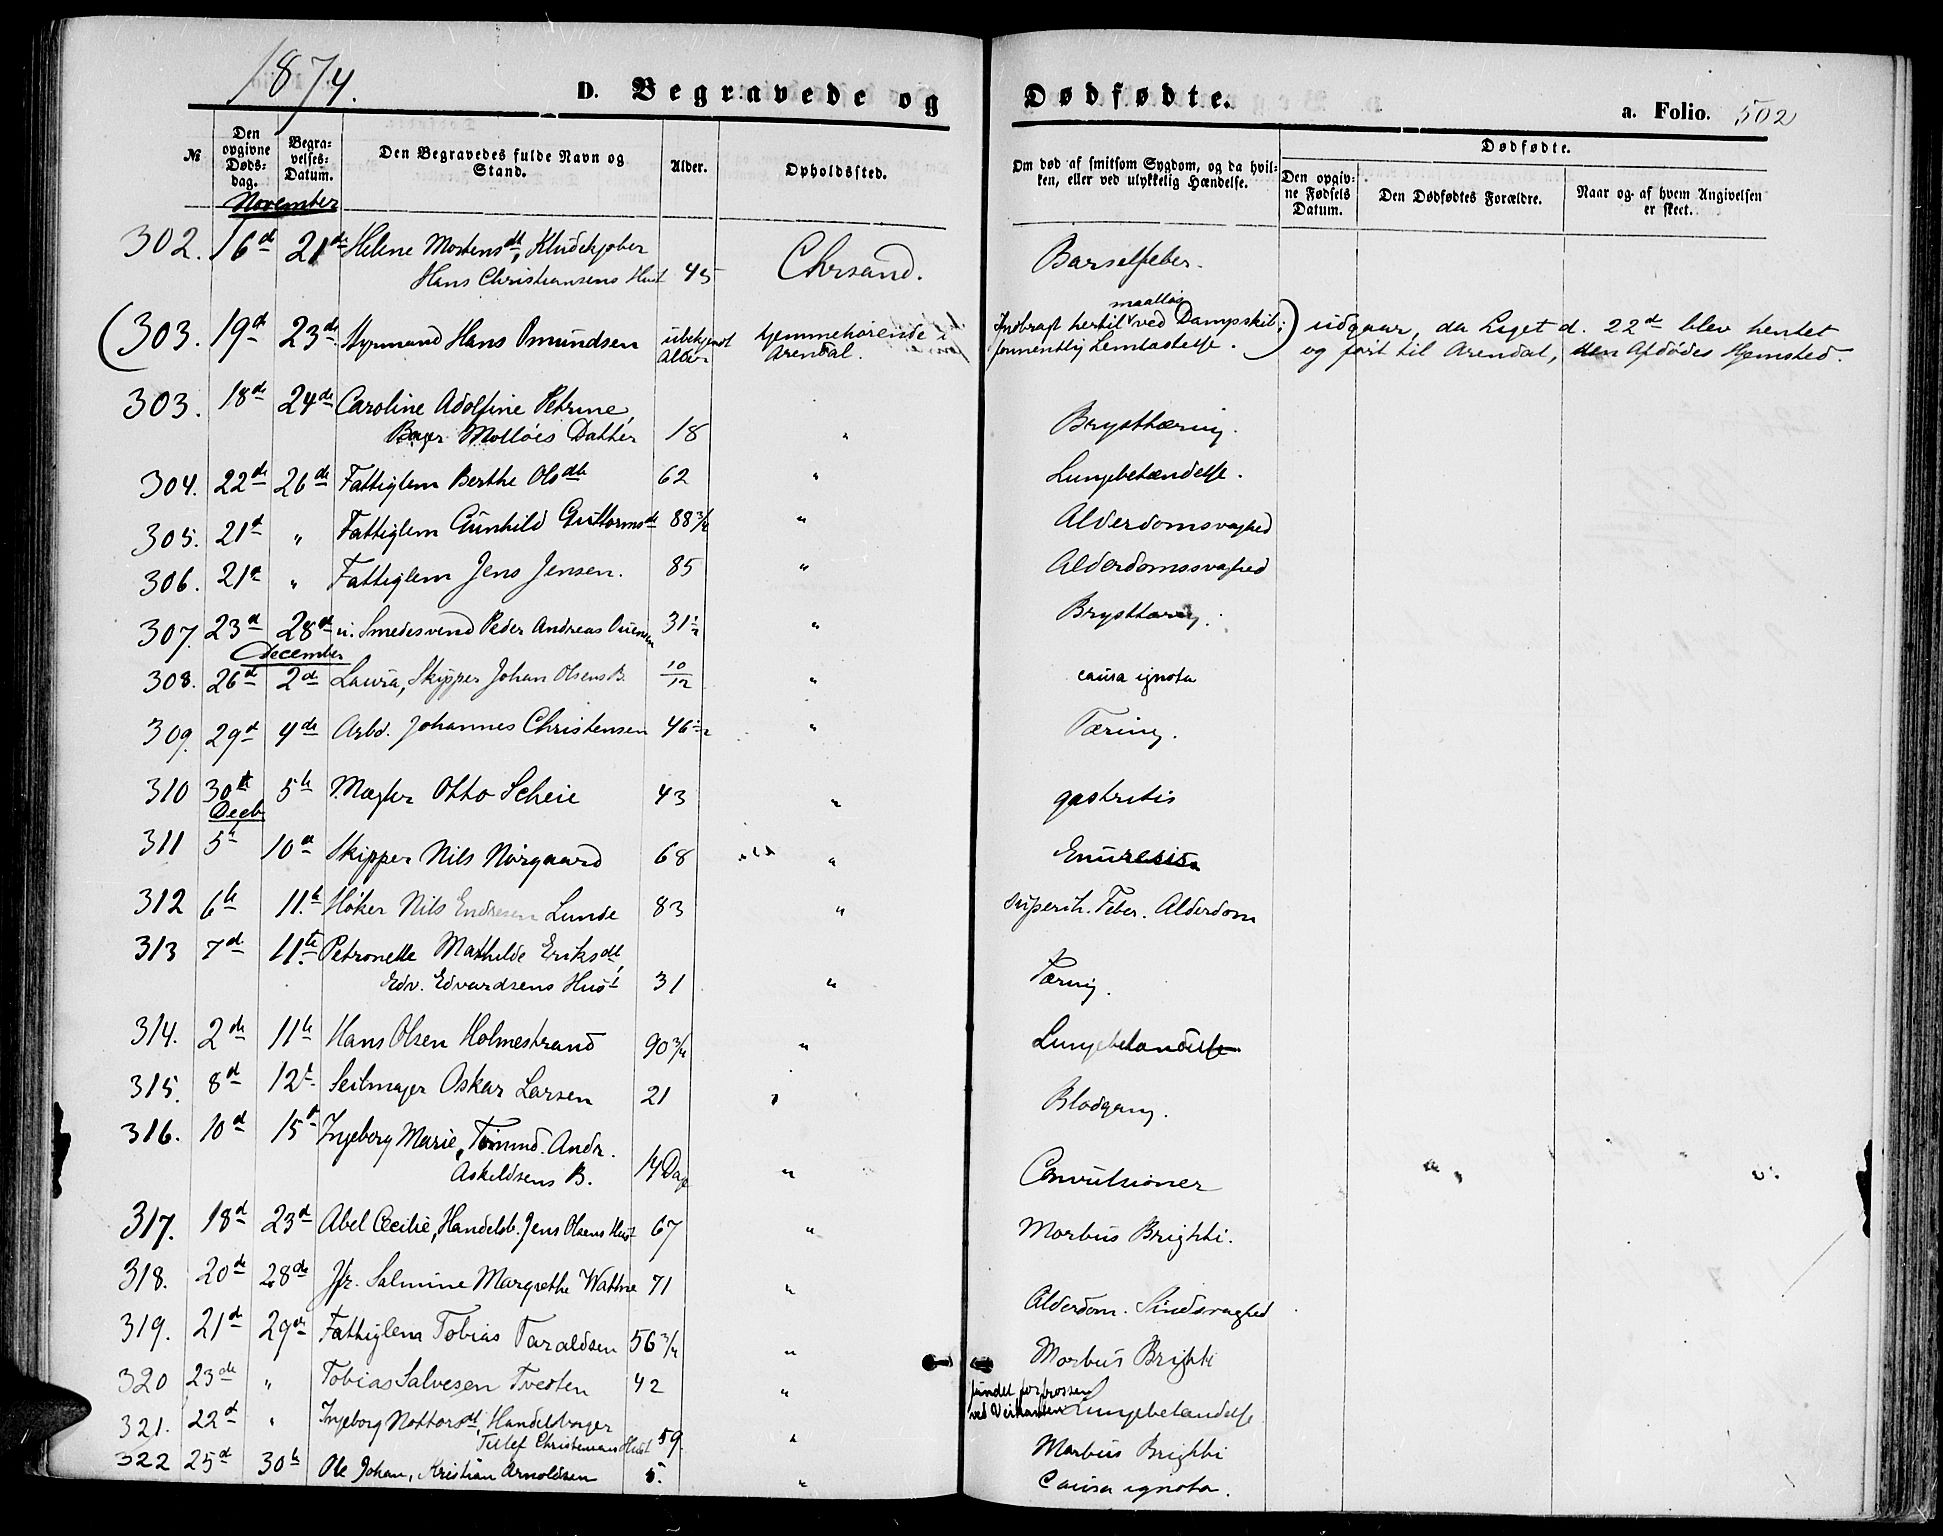 1874.
D. Begravede og Dødfødte.
a. Folio. 502
№ Den opgivne Døds-dag. Begra-velses-Datum. Den Begravedes fulde Navn og Stand. Alder. Opholdssted. Om død af smitsom Sygdom, og da hvil-ken, eller ved ulykkelig Hændelse. Dødfødte. Den opgiv-ne Fødsels Datum. Den Dødfødtes Forældre. Naar og af hvem Angivelsen er skeet.
November
302. 16d 21de Helene Mortensdt, Kludekjøber
Hans Christiansens Hust 45 Chrsand. Barselfeber.
(303. 19d 23de Styrmand Hans Omundsen ubekjendt Alder hjemmehørende i Arendal. Indbragt hertil maalløs ved Dampskib; formentlig Lemlæstelse.) udgaar, da Liget d. 22d blev hentet
og ført til Arendal, den Afdødes Hjemsted.
303. 18de 24de Caroline Adolfine Petrine,
Bager Molløes Datter 18 " Brysttæring.
304. 22de 26de Fattiglem Berthe Olsdtr 62 " Lungebetændelse.
305. 21d " Fattiglem Gunhild Guttormsdt 88 3/4 " Alderdomsvaghed
306. 21d " Fattiglem Jens Jensen. 85 " Alderdomssvaghed
307. 23d 28de u. Smedesvend Peder Andreas 31 1/2 " Brysttæring.
December
308. 26d 2de Laura, Skipper Johan Olsens B. 10/12 " causa ignota
309. 29d 4de Arbd. Johannes Christensen 46 1/2 " Tæring.
310 30t 5te Mægler Otto Scheie 43 " gastritis
Decb
311 5t 10d Skipper Nils Nørgaard 68 " Enuresis
312 6te 11te Høker Nils Endresen Lunde 83 " Feber. Alderdom
313 7d 11te Petronelle Mathilde Eriksdt,
Edv. Edvardsens Hust 31 " Tæring.
314. 2de 11te Hans Olsen Holmestrand 90 3/4 " Lungebetændelse
315. 8d 12t Seilmager Oskar Larsen 21 " Blodgang.
316. 10d 15d Ingeborg Marie, Tømmd. Andr.
Askildsens B. 14 Dage " Convulsioner
317. 18d 23d Abel Cecilie, Handelsb. Jens Olsens Hust 67 " Morbus Brightii.
318. 20de 28de Jfr. Salmine Margrethe Wattne 71 " Alderdom. Sindsvaghed
319. 21d 29de Fattiglem Tobias Taraldsen 56 3/4 " Morbus Brightii
320 23de " Tobias Salvesen Tveden 42 " fundet forfrossen ved Veikanten Lungebetændelse
321. 22d " Ingeborg Nottorsdt, Handelsborger
Tellef Christensens Hust 59 " Morbus Brightii
322 25d 30te Ole Johan, Kristian Arnoldsen 5. " Causa ignota.